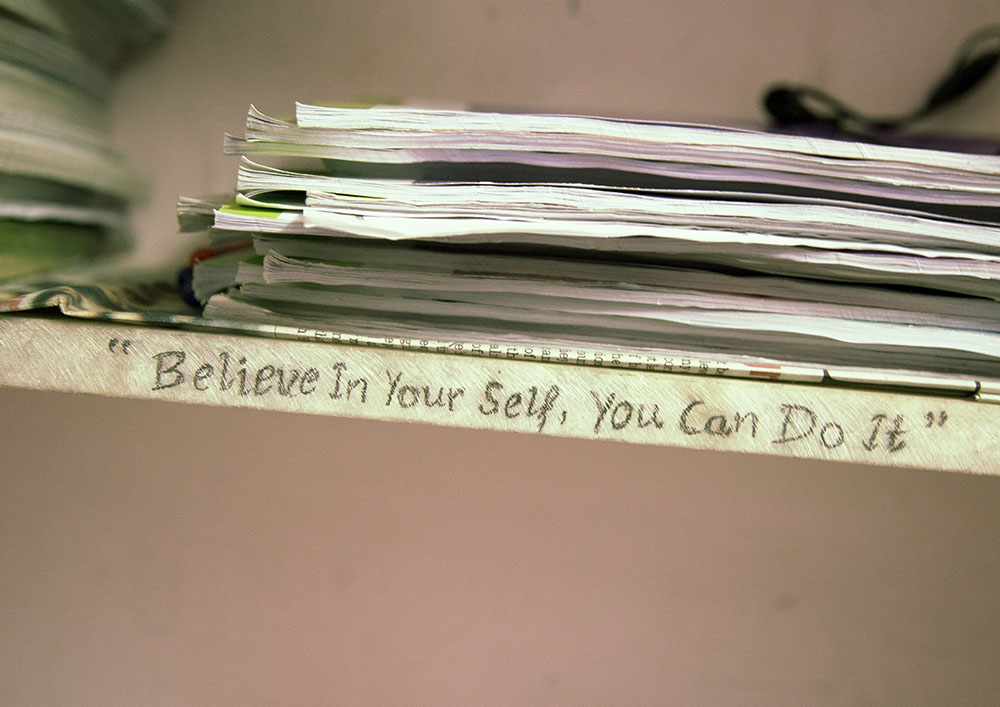 “Believe In Your Self, You Can Do It”